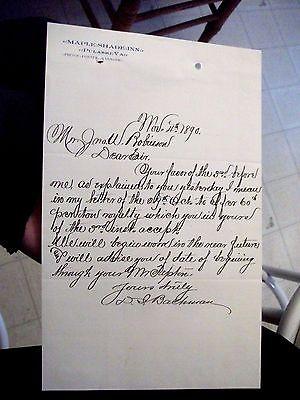 MAPLE SHADE INN
PULASKI, VA.
Nov. 4th 1890.
Mr Jno. W. Robinson
Dear Sir.
Your favor of the 3rd before
me, as explained to you yesterday I mean
in my letter of the 29th Oct. to offer 60¢
per ton royalty which you in yours
of the 3rd inst. accept.
We will begin work in the near future
I will advise you of date of beginning
through your
Yours truly